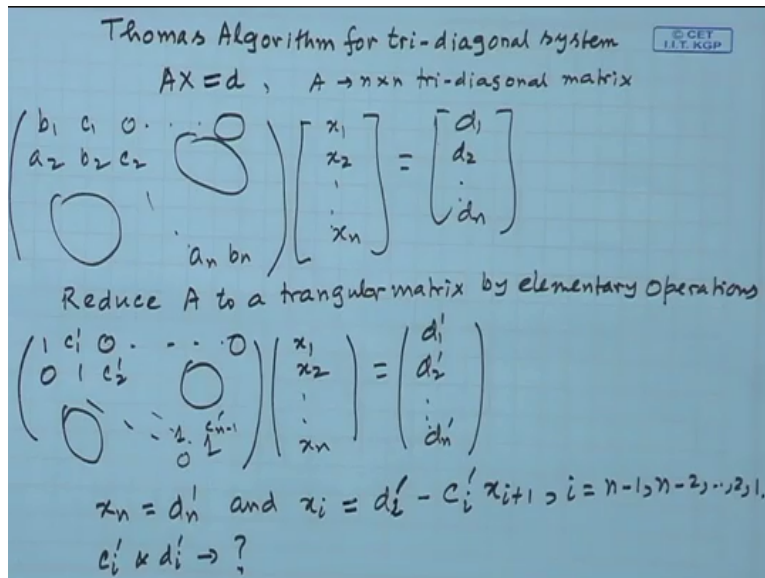 Thomas Algorithm for tri-diagonal system
© CET
I.I.T. KGP
AX = d , A → n×n tri-diagonal matrix
b₁ c₁ 0 . . . 0
a₂ b₂ c₂
aₙ bₙ
x₁
x₂
.
.
xₙ
=
d₁
d₂
.
dₙ
Reduce A to a trangular matrix by elementary operations
1 c₁' 0 . . . . 0
0 1 c₂' 0
0 1 c'ₙ₋₁
0 1
x₁
x₂
.
.
xₙ
=
d₁'
d₂'
.
.
dₙ'
xₙ = dₙ' and xᵢ = dᵢ' - cᵢ' xᵢ₊₁ , i = n-1, n-2, .., 2, 1.
cᵢ' & dᵢ' → ?